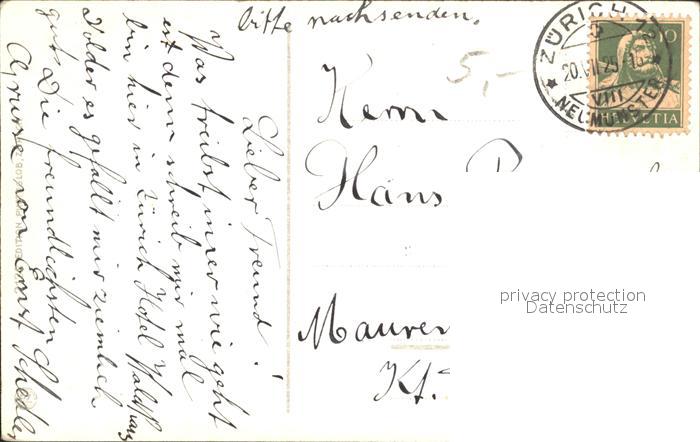 bitte nachsenden.
5,-
ZÜRICH 12
3
20.VII.25
VIII
NEUMÜNSTER
10
HELVETIA
Herrn
Hans
Maurer
Kt.
privacy protection
Datenschutz
Lieber Freund!
Was treibst immer wie geht
est denn schreib mir mal
bin hier in Zürich Hotel Waldhaus
Dolder es gefällt mir ziemlich
gut. Die freundlichsten
Grüsse von Ernst